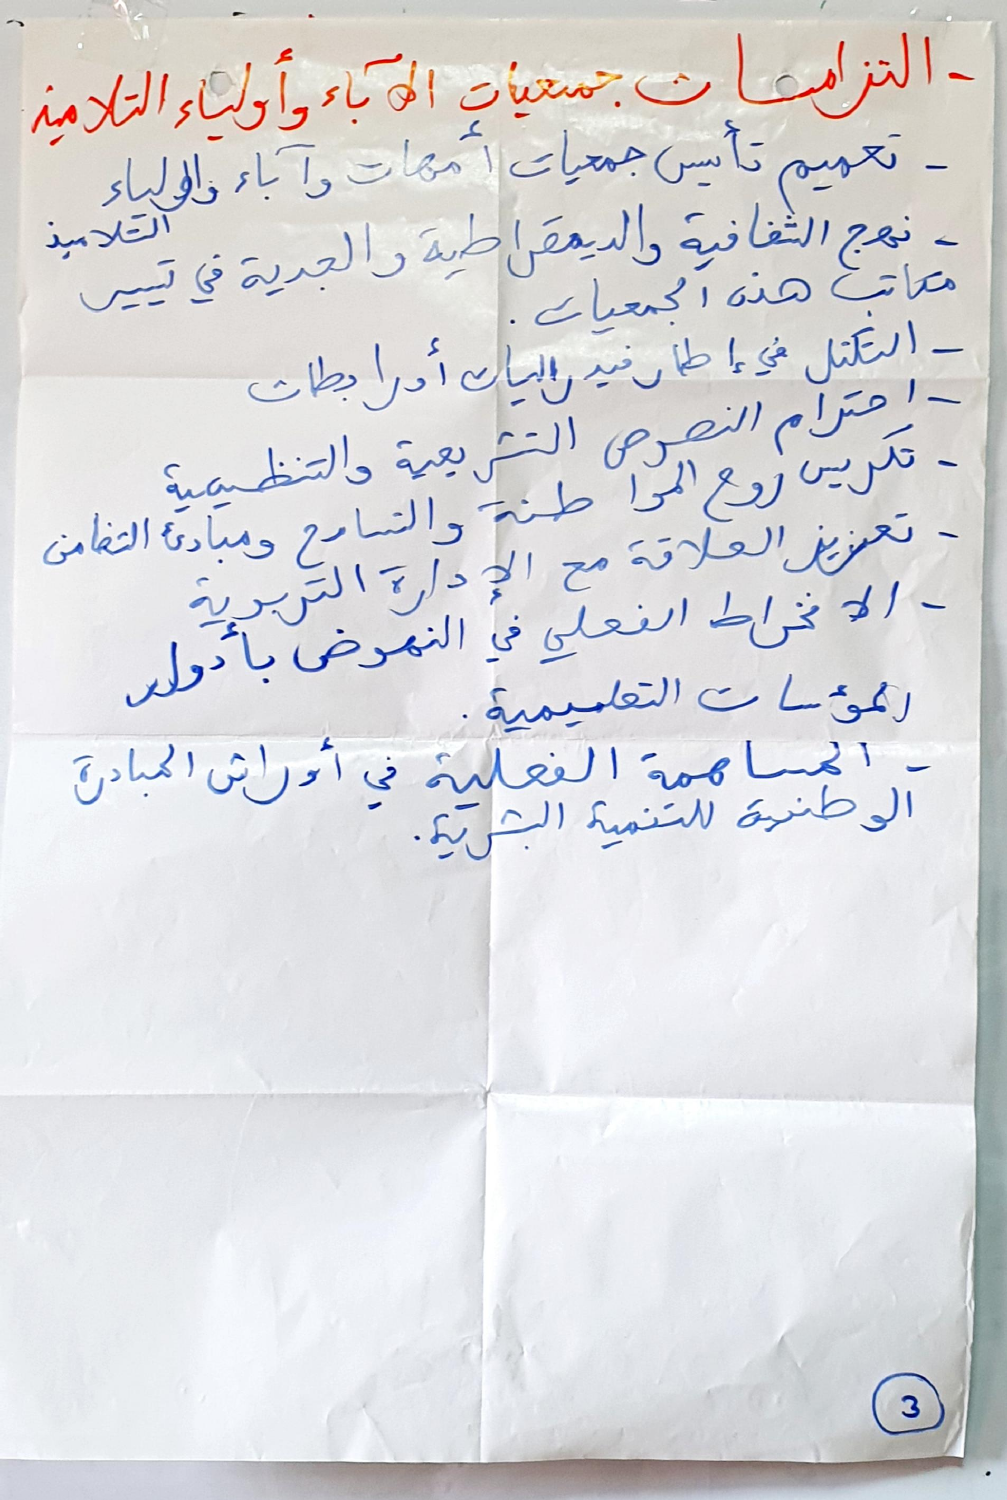 - التزامات جمعيات الآباء وأولياء التلاميذ
- تعميم تأسيس جمعيات أمهات وآباء وأولياء
التلاميذ
- نهج الشفافية والديمقراطية والجدية في تسيير
مكاتب هذه الجمعيات .
- التكتل في إطار فيدراليات أو رابطات
- احترام النصوص التشريعية والتنظيمية
- تكريس روح المواطنة والتسامح ومبادئ التضامن
- تعزيز العلاقة مع الإدارة التربوية
- الانخراط الفعلي في النهوض بأدوار
المؤسسات التعليمية .
- المساهمة الفعلية في أوراش المبادرة
الوطنية للتنمية البشرية .
3